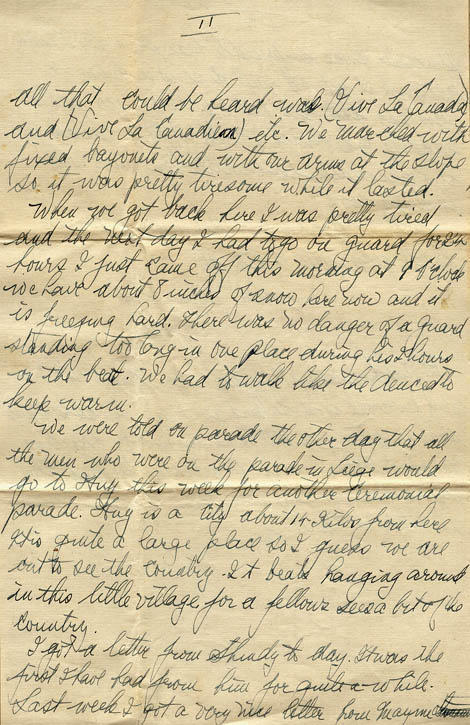 II
all that could be heard was. (Vive La Canada)
and (Vive La Canadien) etc. We marched with
fixed bayonets and with our arms at the slope
so it was pretty tiresome while it lasted.
When we got back here I was pretty tired
and the next day I had to go on guard for 24
hours I just came off this morning at 9 o'clock
we have about 8 inches of snow here now and it
is freezing hard. There was no danger of a guard
standing too long in one place during his 2 hours
on the beat. We had to walk like the deuced to
keep warm.
We were told on parade the other day that all
the men who were on the parade in Liege would
go to Huy this week for another Ceremonial
parade. Huy is a city about 14 Kilos from here
It is quite a large place so I guess we are
out to see the country. It beats hanging around
in this little village for a fellow sees a bit of the
country.
I got a letter from to day. It was the
first I have had from him for quite a while.
Last week I got a very nice letter from